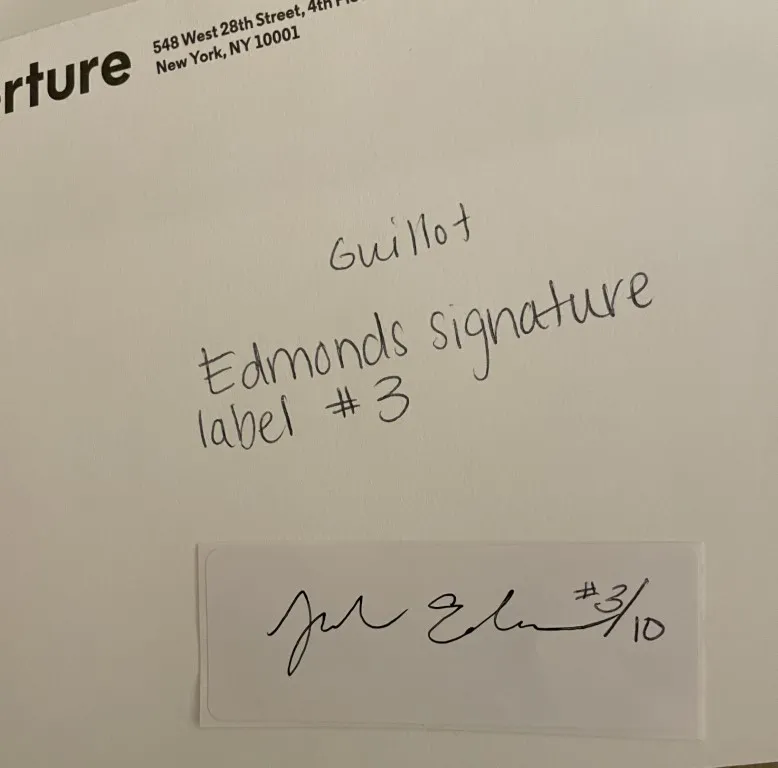 rture
548 West 28th Street, 4th
New York, NY 10001
Guillot
Edmonds signature
label #3
#3/10